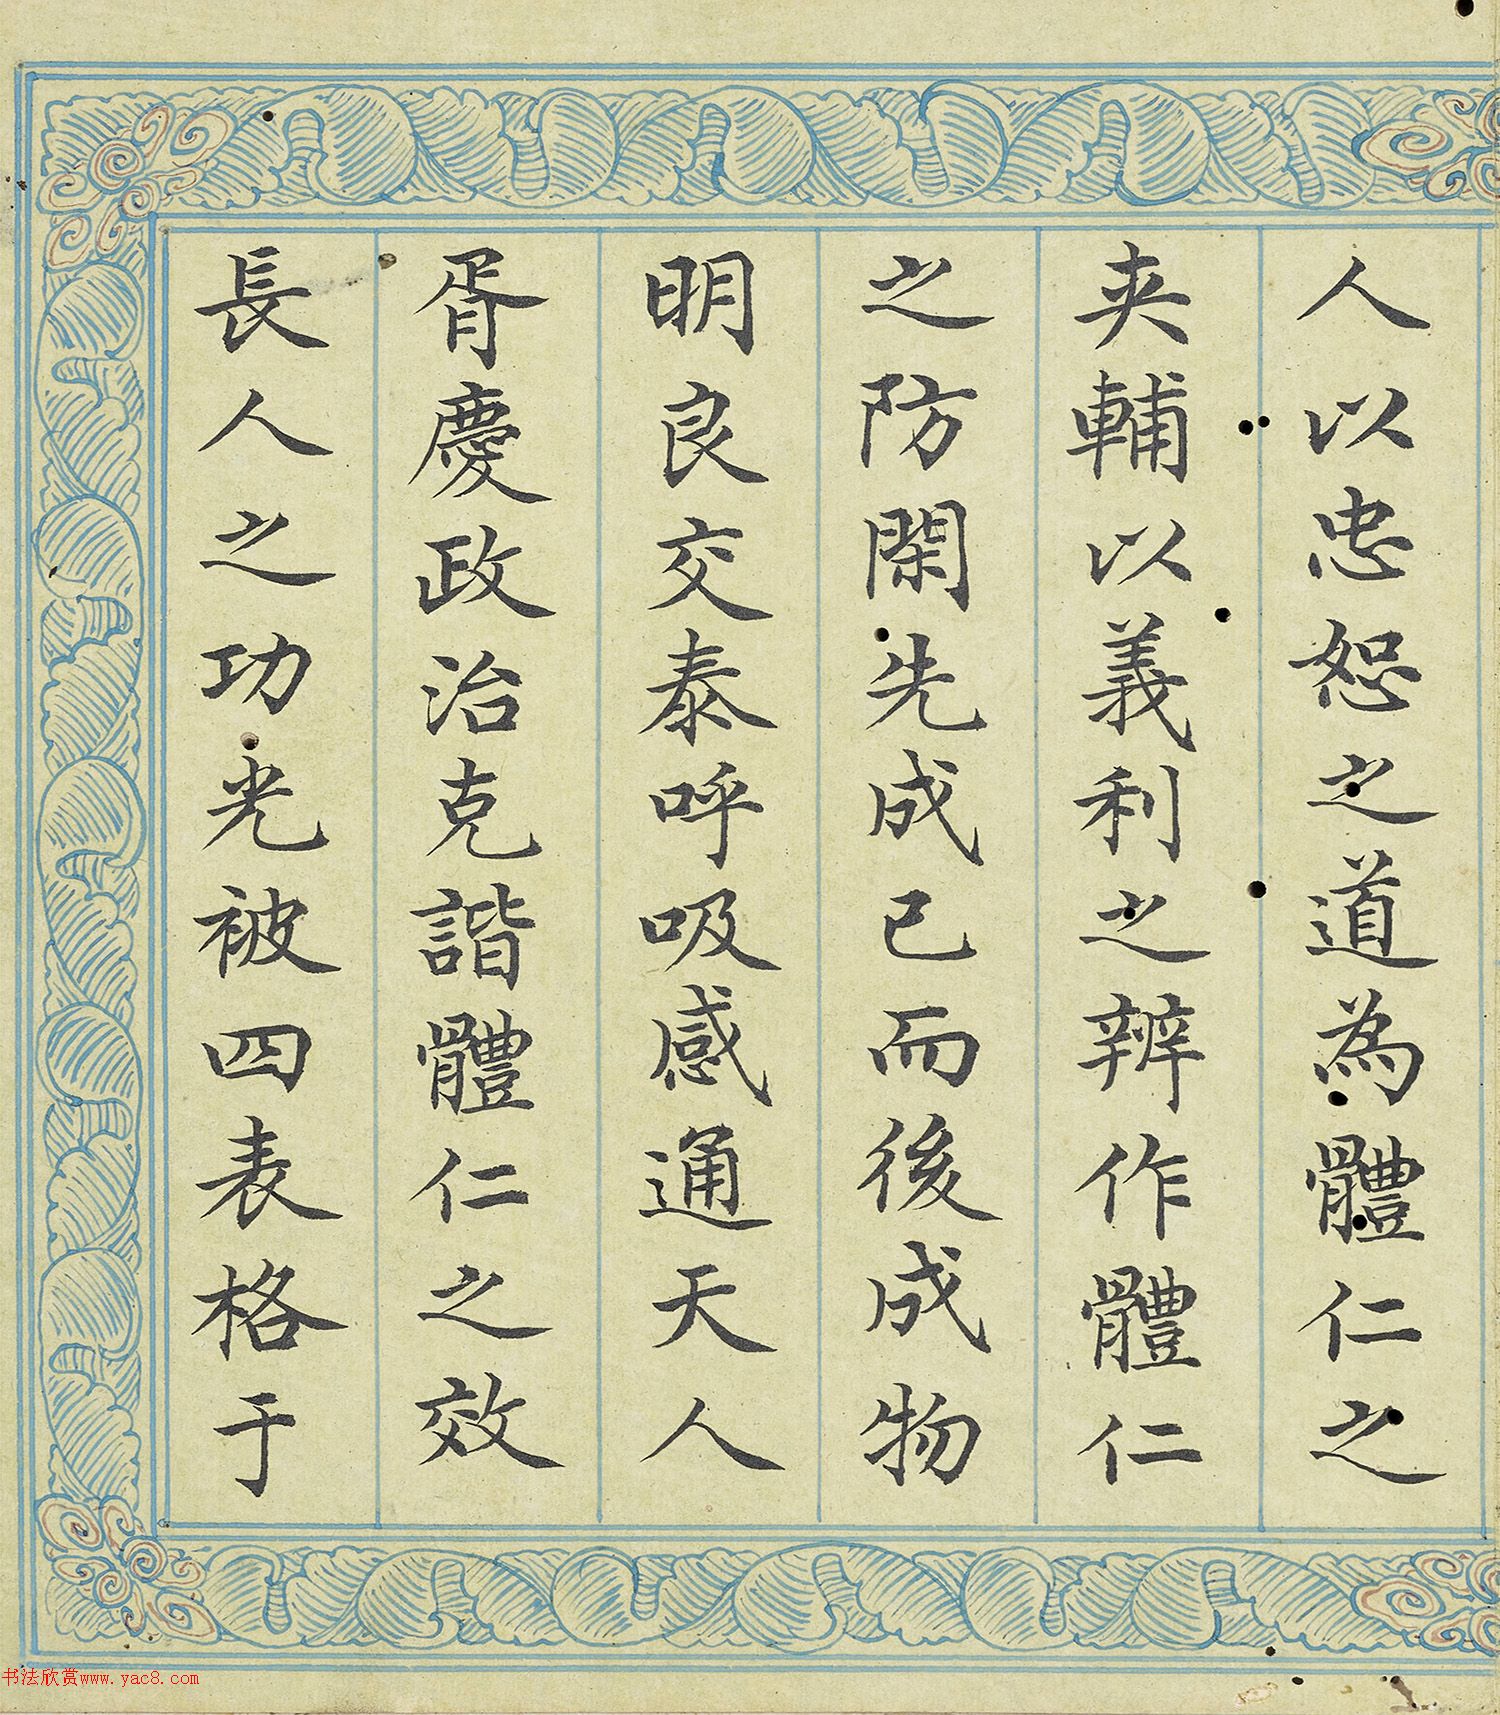 人以忠恕之道為體仁之
夾輔以義利之辨作體仁
之防閑先成已而後成物
明良交泰呼吸感通天人
胥慶政治克諧體仁之效
長人之功光被四表格于
书法欣赏www.yac8.com